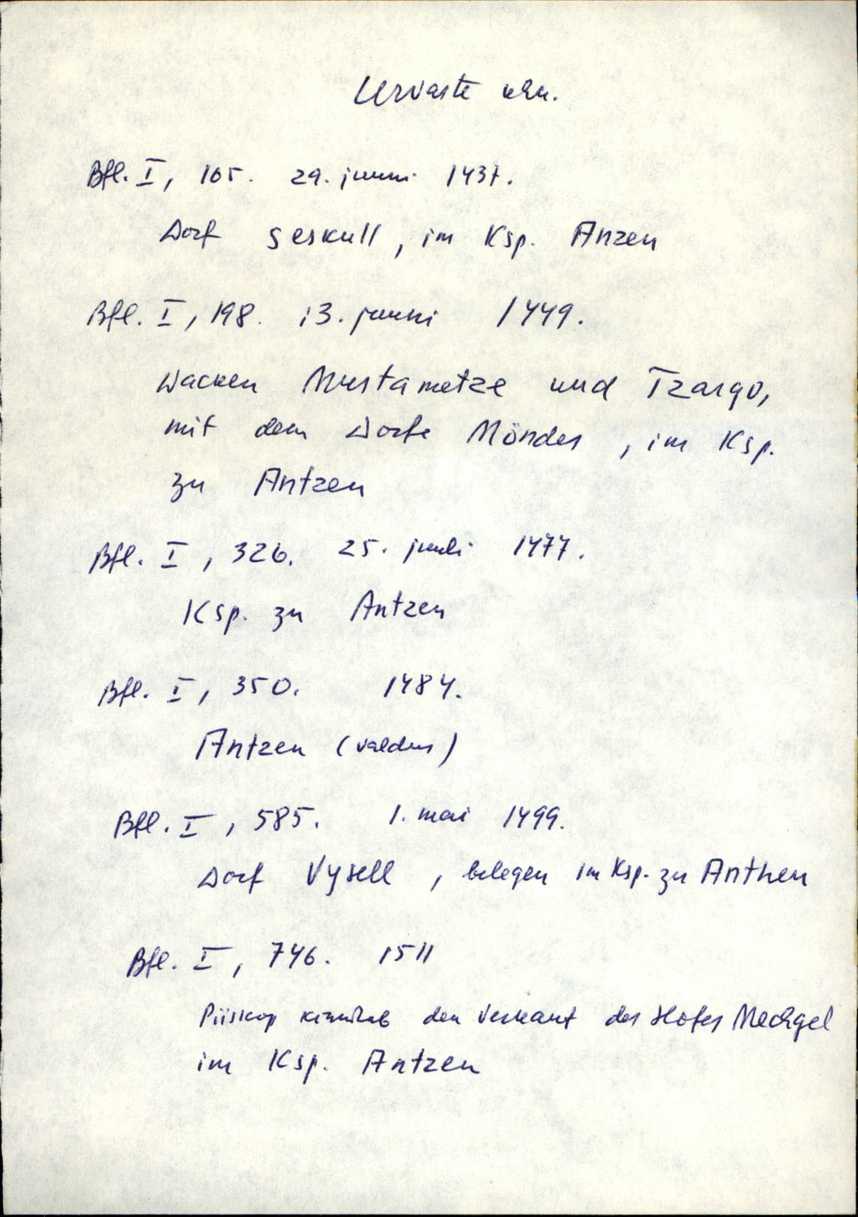 Urvaste khn.
Bfl. I, 165. 29. juuni 1437.
Dorf Seskull, im Ksp. Anzen
Bfl. I, 198. 13. juuni 1449.
Wacken Mustametze und Tzargo,
mit dem Dorfe Möndes, im Ksp.
zu Antzen
Bfl. I, 326. 25. juuli 1477.
Ksp. zu Antzen
Bfl. I, 350. 1484.
Antzen (valdus)
Bfl. I, 585. 1. mai 1499.
Dorf Vysell, belegen im Ksp. zu Anthen
Bfl. I, 746. 1511
Piiskop kinnitab den Verkauf des Hofes Mechgel
im Ksp. Antzen